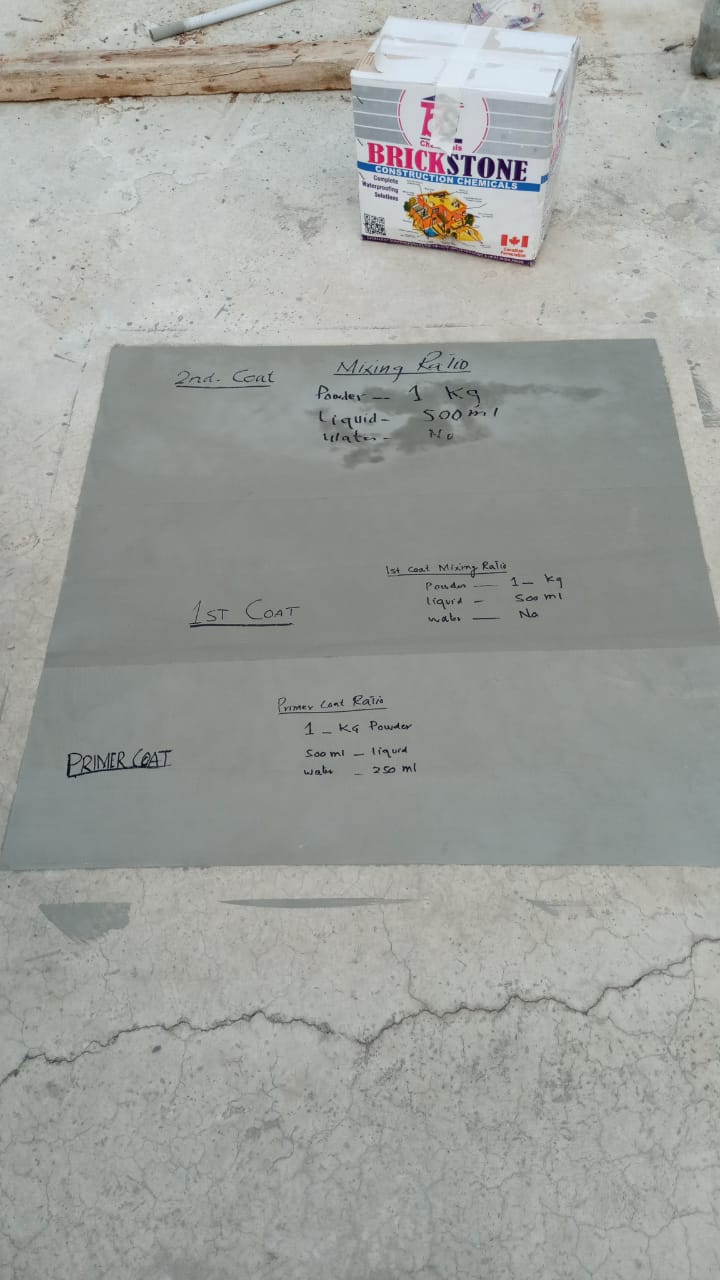 BRICKSTONE
CONSTRUCTION CHEMICALS
Complete
Waterproofing
Solutions
Canadian
Formulation
2nd. Coat
Mixing Ratio
Powder -- 1 Kg
Liquid- 500ml
Water- No
1st Coat Mixing Ratio
Powder — 1 — Kg
liquid – 500 ml
water — No
1ST COAT
Primer Coat Ratio
1 – KG Powder
500 ml – liquid
water – 250 ml
PRIMER COAT